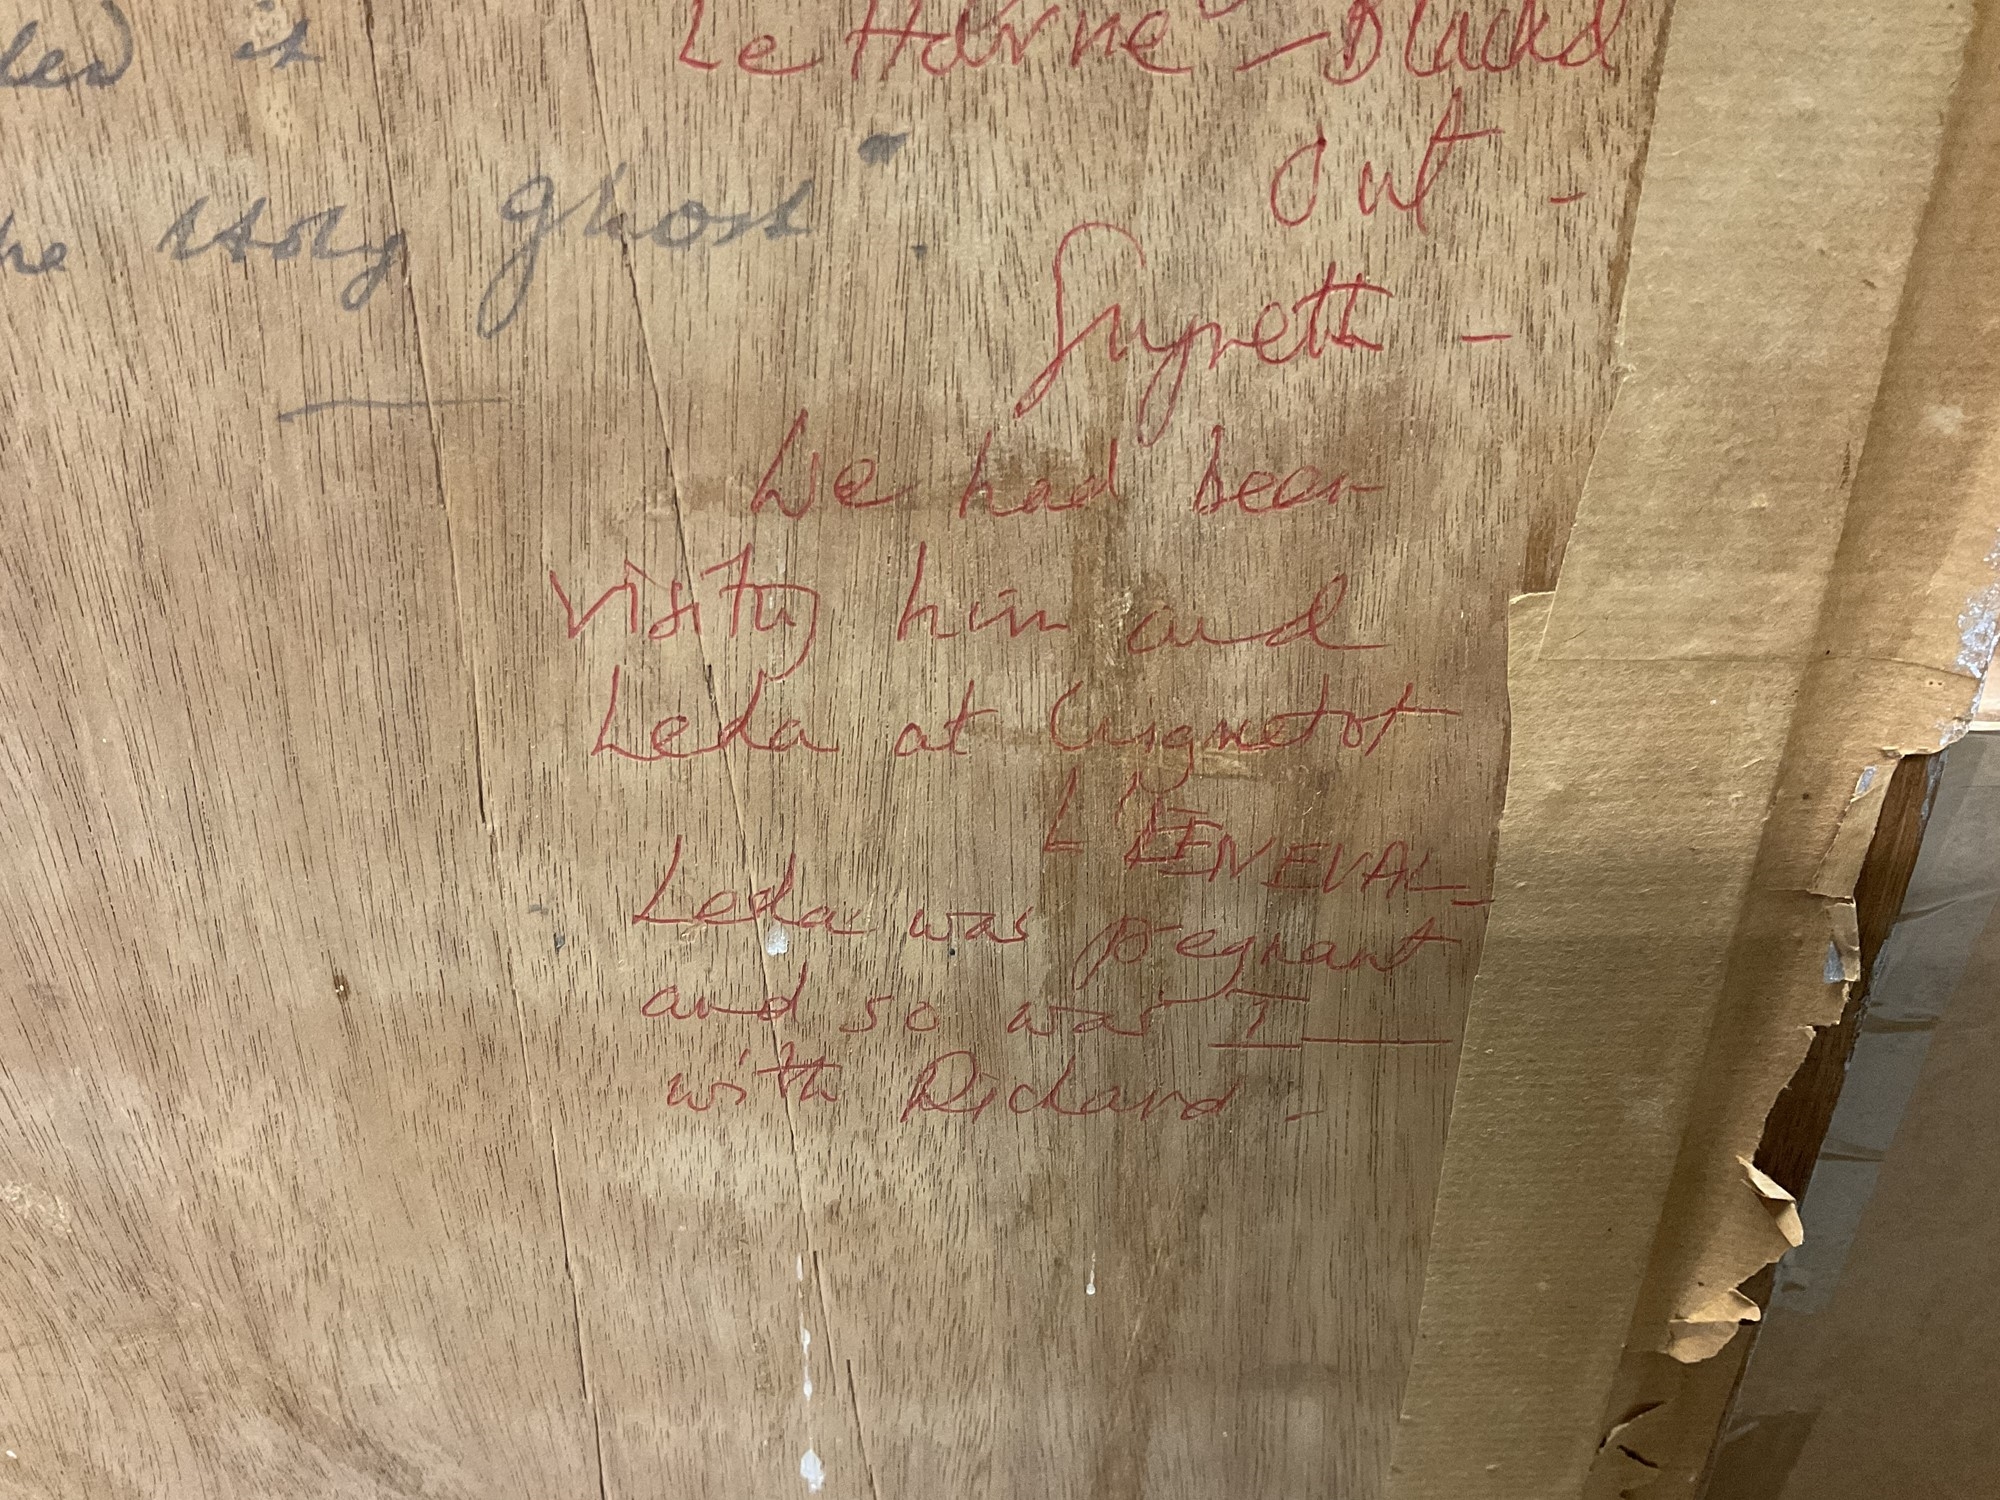 it
Le Havre - Blackd
out -
Holy Ghost".
We had been
visiting him and
Leda at Cugnetot
L'ENEVAL
Leda was pregnant
and so was I
with Richard -